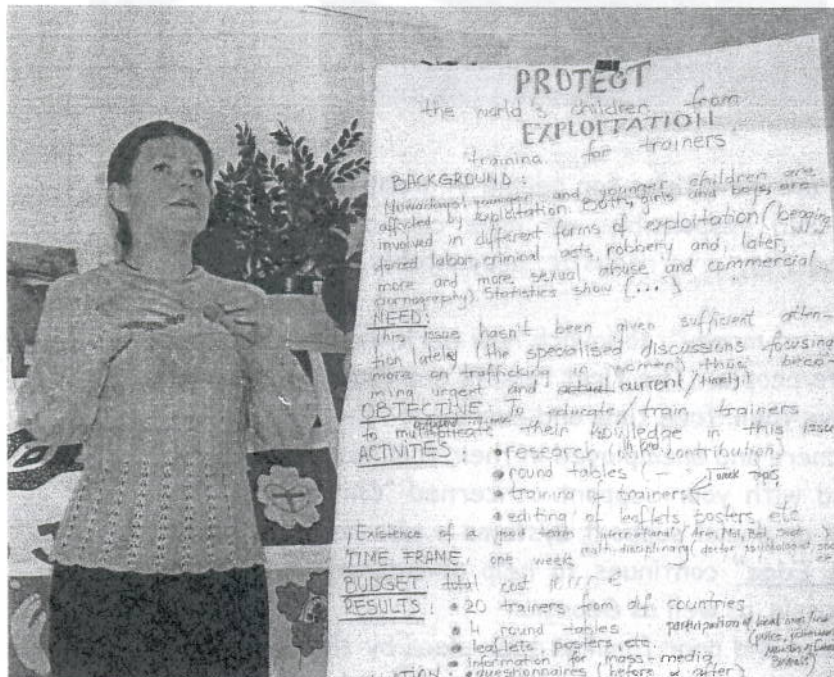 PROTECT
the world's children from
EXPLOITATION
training for trainers
BACKGROUND:
Nowadays younger and younger children are
affected by exploitation. Both, girls and boys, are
involved in different forms of exploitation (begging,
forced labor, criminal acts, robbery and, later,
more and more sexual abuse and commercial
pornography). Statistics show (...)
NEED:
This issue hasn't been given sufficient atten-
tion lately (the specialised discussions focusing
more on trafficking in women) thus beco-
ming urgent and actual current/timely
OBJECTIVE: To educate/train trainers
to their knowledge in this issue
ACTIVITIES: • research contribution)
• round tables (—
• training of trainers
• editing of leaflets, posters, etc
Existence of a good team international
TIME FRAME: one week multi-disciplinary (doctor, psychologist,
BUDGET: total cost
RESULTS: • 20 trainers from dif countries
• 4 round tables participation of local
• leaflets, posters, etc. (police,
• information for mass-media
• questionnaires (before & after)